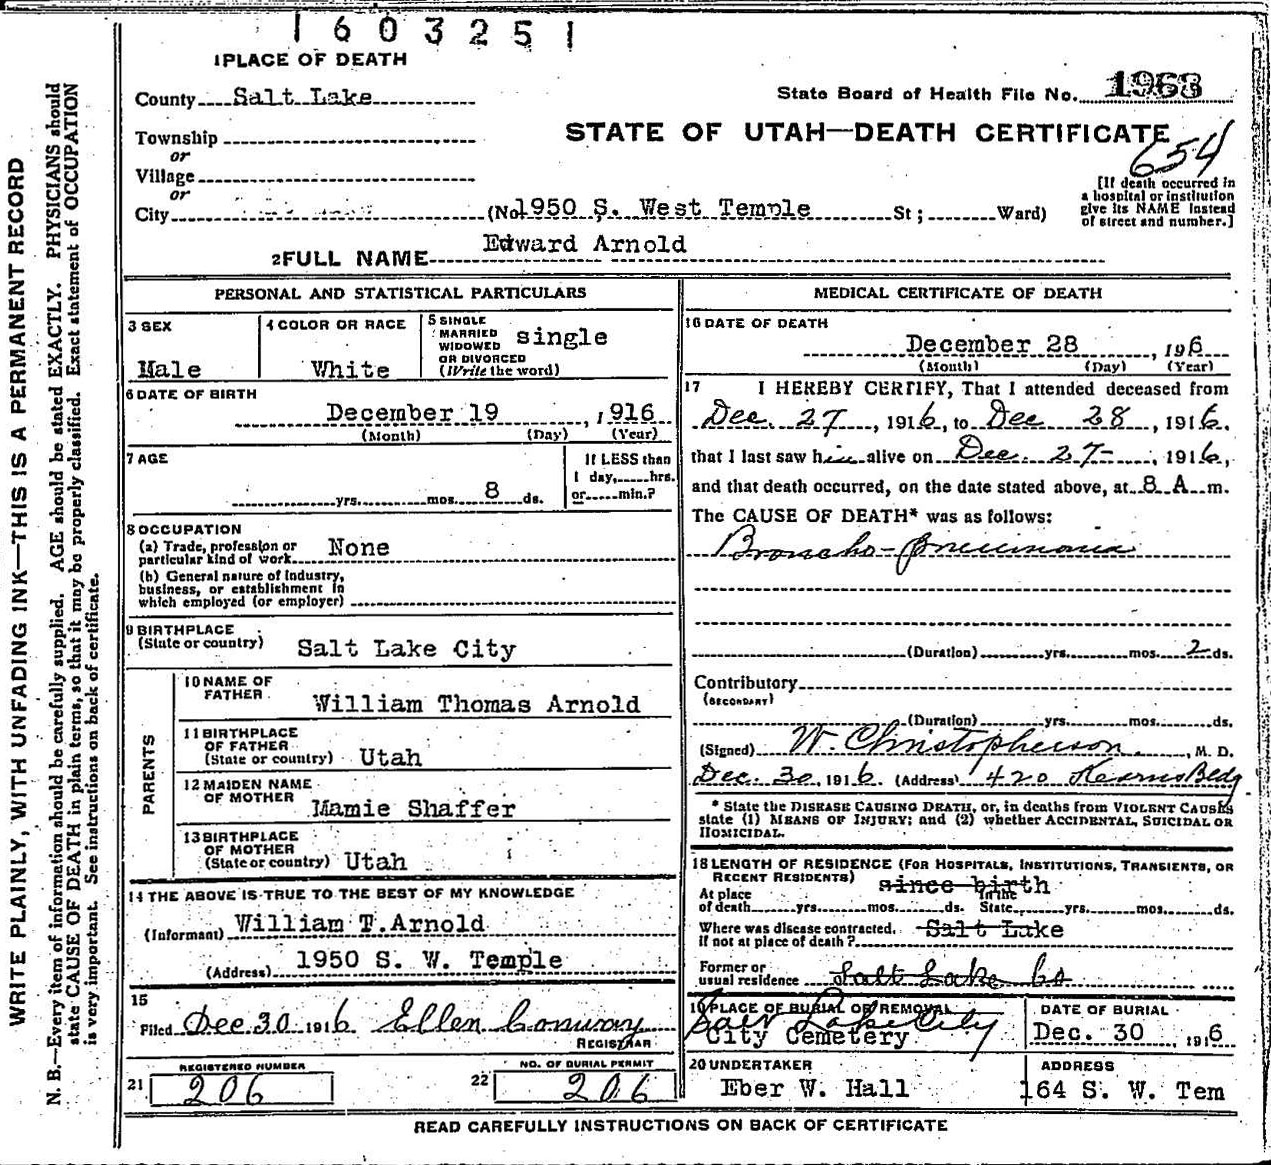 1603251
1 PLACE OF DEATH
County Salt Lake
State Board of Health File No. 1968
Township
or
Village
or
City
STATE OF UTAH—DEATH CERTIFICATE
654
[If death occurred in
a hospital or institution
give its NAME instead
of street and number.]
(No. 1950 S. West Temple St; Ward)
2 FULL NAME Edward Arnold
PERSONAL AND STATISTICAL PARTICULARS
3 SEX
Male
4 COLOR OR RACE
White
5 SINGLE
MARRIED
WIDOWED
OR DIVORCED
(Write the word)
single
6 DATE OF BIRTH
December 19, 1916
(Month) (Day) (Year)
7 AGE
yrs. mos. 8 ds.
If LESS than
1 day, hrs.
or min.?
8 OCCUPATION
(a) Trade, profession or
particular kind of work None
(b) General nature of industry,
business, or establishment in
which employed (or employer)
9 BIRTHPLACE
(State or country) Salt Lake City
PARENTS
10 NAME OF
FATHER William Thomas Arnold
11 BIRTHPLACE
OF FATHER
(State or country) Utah
12 MAIDEN NAME
OF MOTHER Mamie Shaffer
13 BIRTHPLACE
OF MOTHER
(State or country) Utah
14 THE ABOVE IS TRUE TO THE BEST OF MY KNOWLEDGE
(Informant) William T. Arnold
(Address) 1950 S. W. Temple
15
Filed Dec 30 1916 Ellen Conway
REGISTRAR
REGISTERED NUMBER
21 206
NO. OF BURIAL PERMIT
22 206
MEDICAL CERTIFICATE OF DEATH
16 DATE OF DEATH
December 28, 1916
(Month) (Day) (Year)
17 I HEREBY CERTIFY, That I attended deceased from
Dec. 27, 1916, to Dec 28, 1916,
that I last saw him alive on Dec. 27, 1916,
and that death occurred, on the date stated above, at 8 A m.
The CAUSE OF DEATH* was as follows:
Broncho-Pneumonia
(Duration) yrs. mos. 2 ds.
Contributory
(SECONDARY)
(Duration) yrs. mos. ds.
(Signed) W. Christopherson, M. D.
Dec. 30, 1916 (Address) 420 Kearns Bldg
* State the DISEASE CAUSING DEATH, or, in deaths from VIOLENT CAUSES
state (1) MEANS OF INJURY; and (2) whether ACCIDENTAL, SUICIDAL OR
HOMICIDAL.
18 LENGTH OF RESIDENCE (FOR HOSPITALS, INSTITUTIONS, TRANSIENTS, OR
RECENT RESIDENTS) since birth
At place In the
of death yrs. mos. ds. State yrs. mos. ds.
Where was disease contracted,
if not at place of death? Salt Lake
Former or
usual residence Salt Lake Co
19 PLACE OF BURIAL OR REMOVAL
Salt Lake City
City Cemetery
DATE OF BURIAL
Dec. 30 1916
20 UNDERTAKER
Eber W. Hall
ADDRESS
164 S. W. Tem
READ CAREFULLY INSTRUCTIONS ON BACK OF CERTIFICATE
WRITE PLAINLY, WITH UNFADING INK—THIS IS A PERMANENT RECORD
N. B.—Every item of information should be carefully supplied. AGE should be stated EXACTLY. PHYSICIANS should
state CAUSE OF DEATH in plain terms, so that it may be properly classified. Exact statement of OCCUPATION
is very important. See instructions on back of certificate.